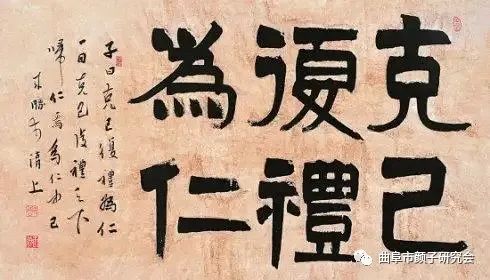 克己
復禮
為仁
子曰克己復禮為仁
一日克己復禮天下
歸仁焉為仁由己
曲阜市颜子研究会